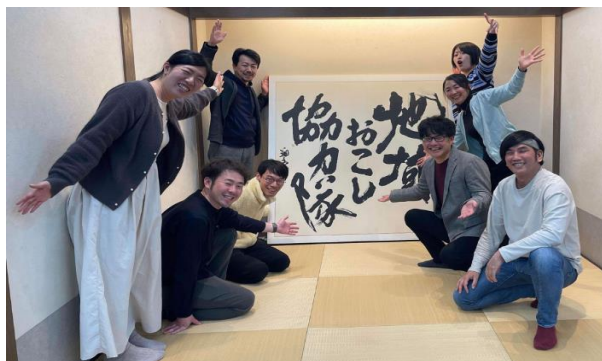 地域
おこし
協力隊